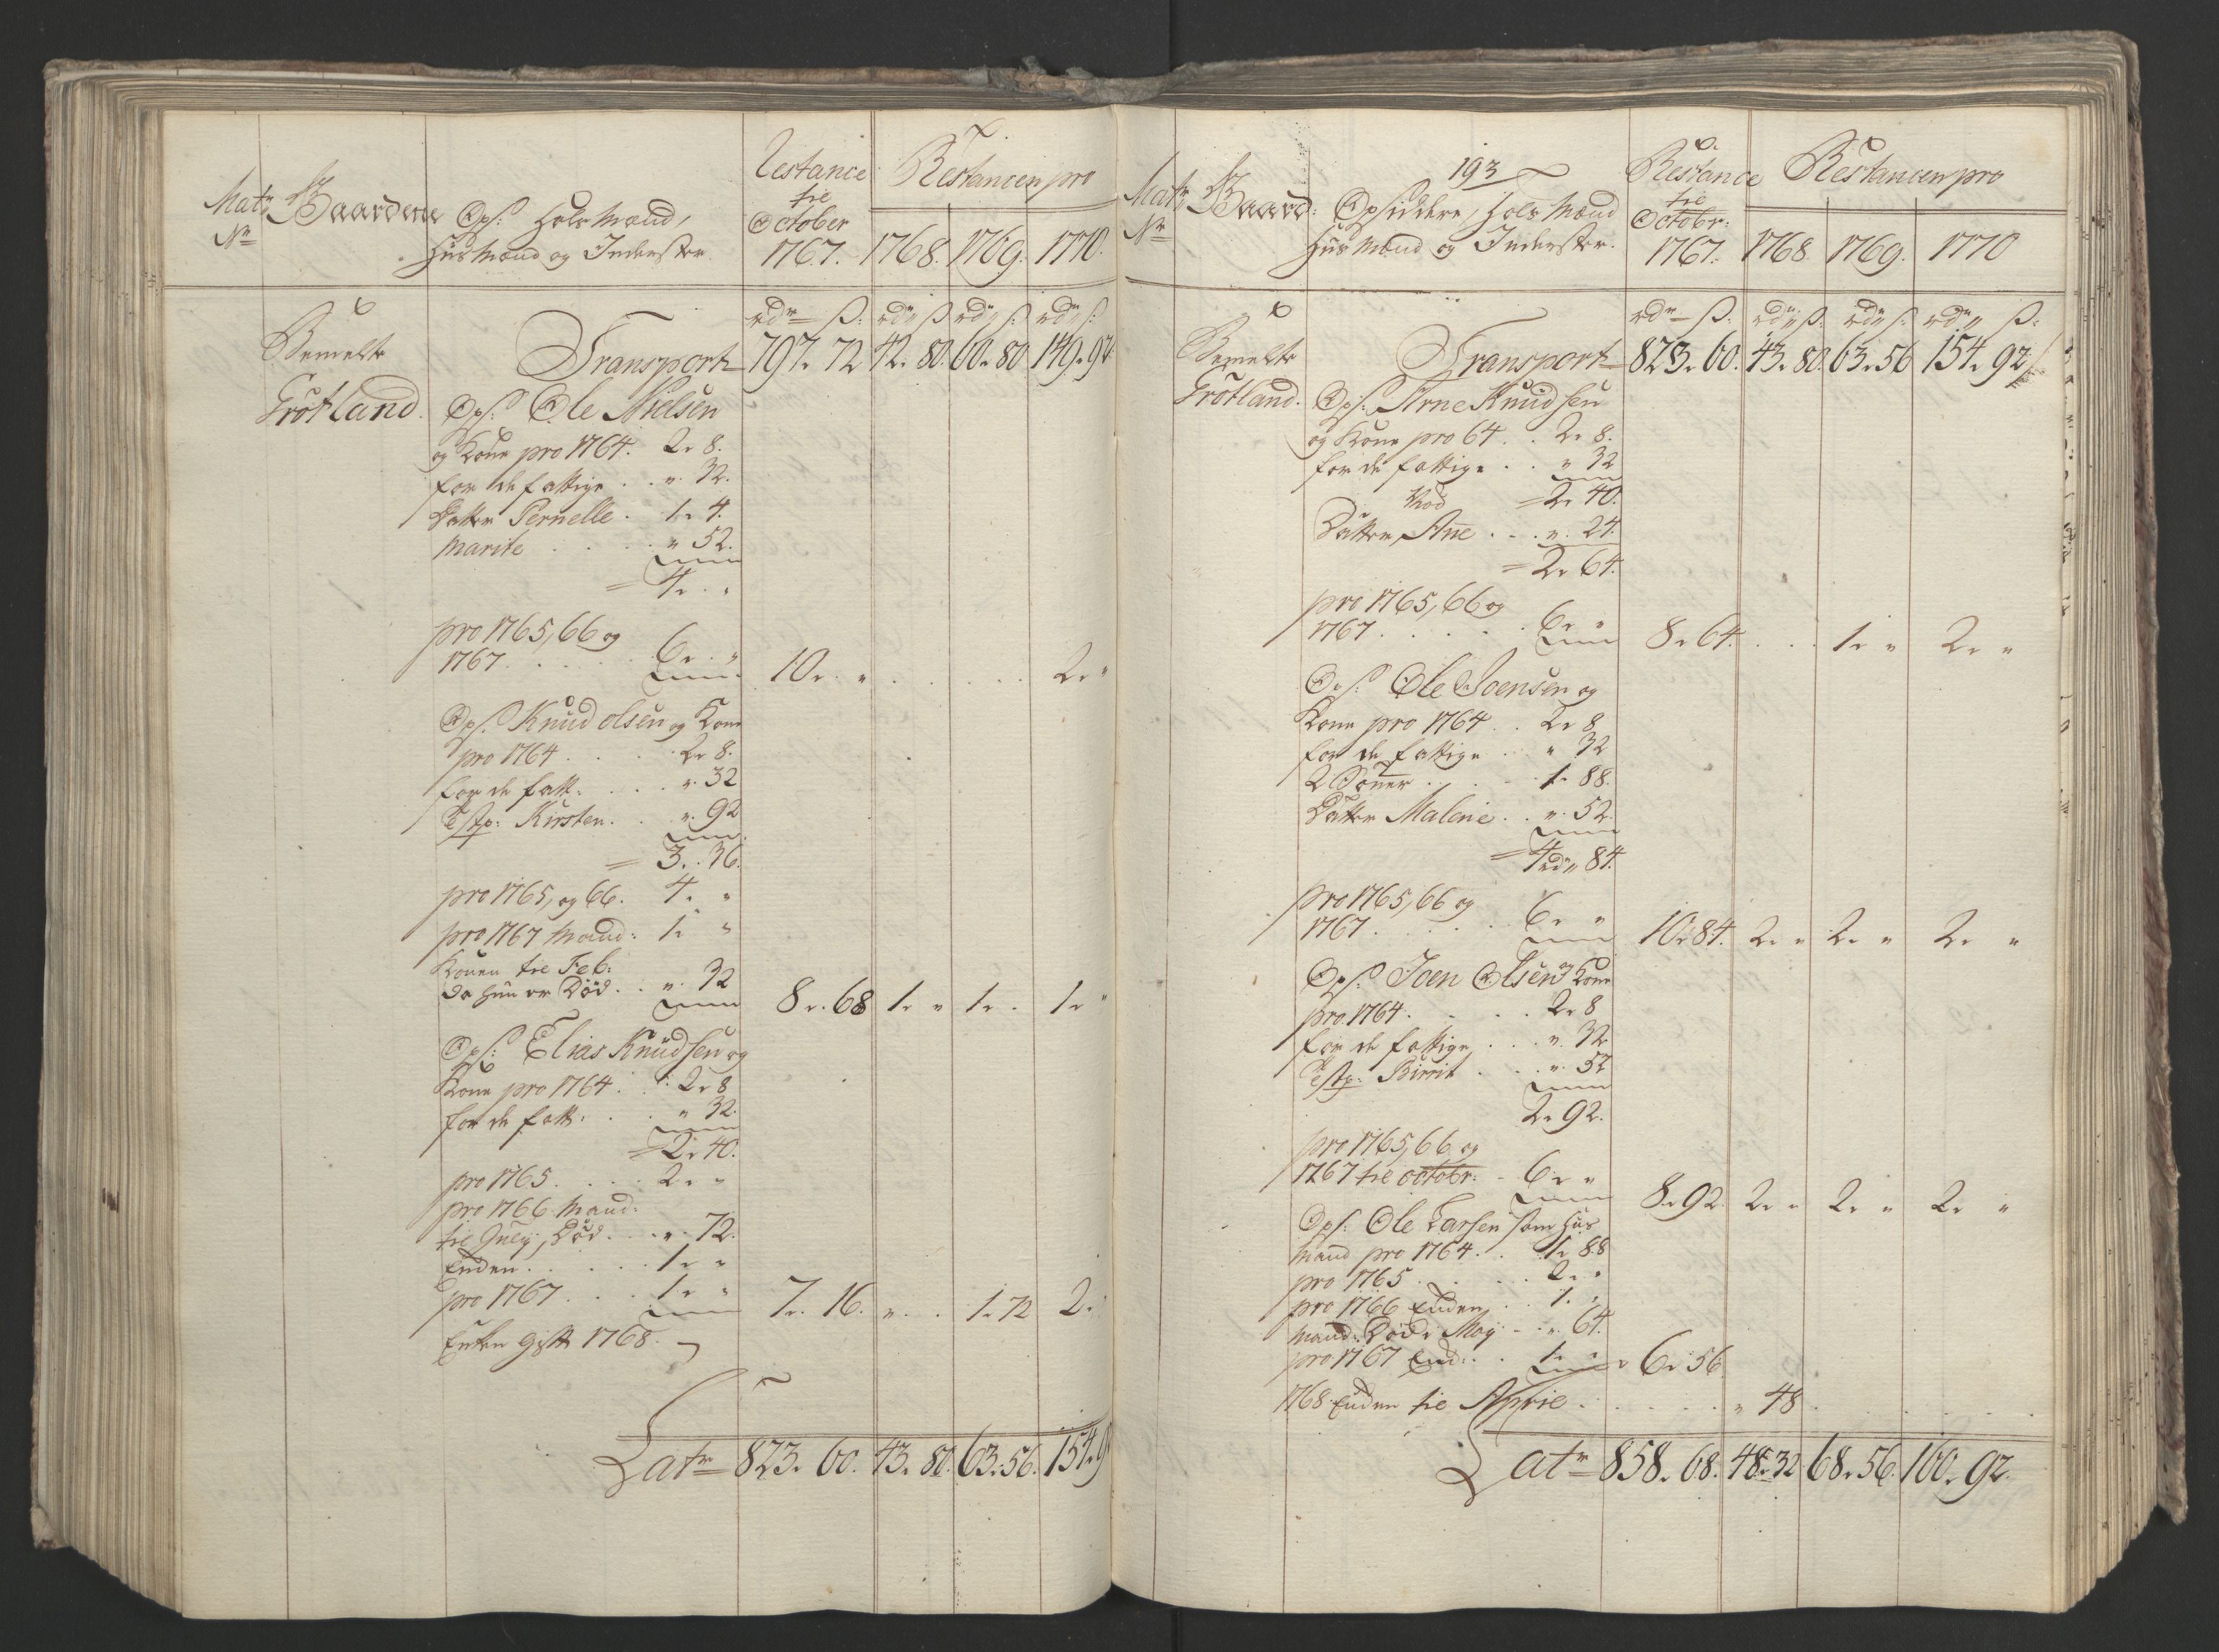 Matr: No
Gaardene
Ops: Hols Mænd,
Huus Mænd og Inderster
Restance til October 1767.
Restancen pro
1768. 1769. 1770.
rdr ß: rdr ß rdr ß: rdr ß:
Bemelte Grøtland.
Transport 797. 72 42. 80. 60. 80 149. 92
Ops: Ole Nielsen
og Kone pro 1764. 2 „ 8.
for de fattige . . „ 32.
Datter Pernelle . 1 „ 4.
Marite . . . . „ 52.
= 4 „ „
pro 1765, 66 og
1767 . . . . . 6 „ „ 10 „ „ . . . . . 2 „ „
Ops: Knud olsen og Kone
pro 1764 . . . . 2 „ 8.
for de fatt: . . . „ 32
Testp: Kirsten . . „ 92
= 3 . 36.
pro 1765, og 66. 4 „ „
pro 1767 Mand: 1 „ „
Konen til Feb:
da hun er Død . . „ 32 8 „ 68 1 „ „ 1 „ „ 1 „ „
Ops: Elias Knudsen og
Kone pro 1764 . : 2 „ 8
for de fatt: . . „ 32.
= 2 „ 40.
pro 1765 . . . . 2 „ „
pro 1766 Mand:
til July, Død . . . „ 72.
Enken . . . . . 1 „ „
pro 1767 . . . 1 „ „ 7 „ 16. „ . . 1 „ 72 2 „
Enken gift 1768.
Latr 823. 60. 43. 80. 63. 56. 154. 9
193
Matr No
Gaard:
Opsiddere, Hols Mænd
Huus Mænd og Inderster.
Restance til Octobr: 1767.
Restancen pro
1768 1769. 1770
rdr ß: rdr ß: rdr ß: rdr ß:
Bemelte Grøtland.
Transport 823. 60. 43. 80. 63. 56 154. 92
Ops: Arne Knudsen
og Kone pro 64 . . 2 „ 8.
for de fattige . . „ 32
= 2 „ 40.
Datter Ane . . . „ 24.
= 2 „ 64.
pro 1765, 66 og
1767 . . . . . 6 „ „ 8 „ 64. . . . 1 „ „ 2 „ „
Ops: Ole Joensen og
Kone pro 1764 . . 2 „ 8
for de fattige . . „ 32
2 Sønner . . . . 1 „ 88.
Datter Malene . . „ 52.
= 4 rdr 84.
pro 1765, 66 og
1767 . . . . . 6 „ „ 10 „ 84. 2 „ „ 2 „ „ 2 „ „
Ops: Joen Olsen og Kone
pro 1764 . . . . 2 „ 8
for de fattige . . . „ 32
Testp: Birrit . . . „ 52
2 „ 92.
pro 1765, 66 og
1767 til octobr: - 6 „ „ 8 „ 92. 2 „ „ 2 „ „ 2 „ „
Ops: Ole Larsen som Huus
Mand pro 1764 . . 1 „ 88
pro 1765 . . . . 2 „ „
pro 1766 Enken . . 1 „ „
Mand: Død: May - „ 64.
pro 1767 Enk: . . 1 „ „ 6 „ 56
1768 Enken til April . . . . . . „ 48 . . . .
Latr 858. 68. 48. 32 68. 56. 160. 92.